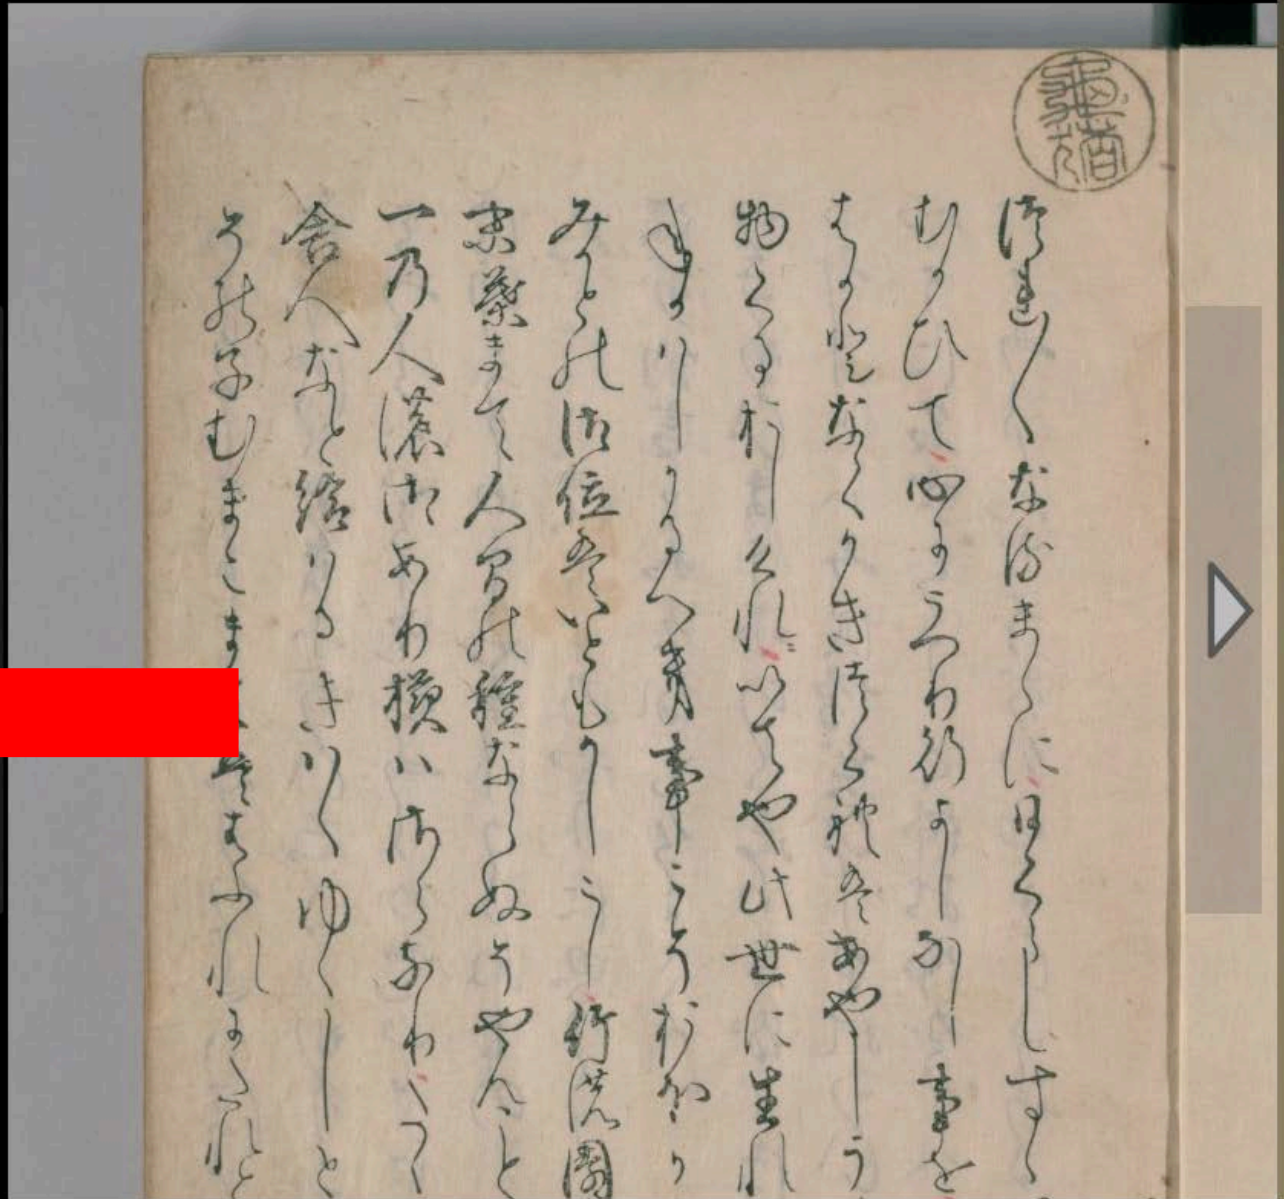 つれ〳〵なるまゝに日くらしすゝ
むかひて心にうつり行よしなし事を
はかとなくかきつくれはあやしう
物くるおしけれいてや此世に生れ
ねかはしかるへき事こそおほか
みかとの御位はいともかしこし竹の園
末葉まて人間の種ならぬそやんこと
一の人の御あり様はさらなりたゝ
舎人なと給はるきはゝゆゝしと
その子むまこま はゝふれにたれと